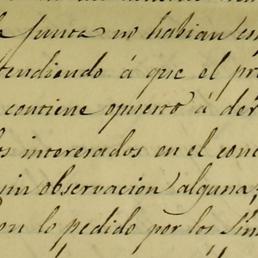 Junta no habian
tendiendo á que el pr
contiene opuesto á der
os interesados en el con
sin observacion alguna;
on lo pedido por los